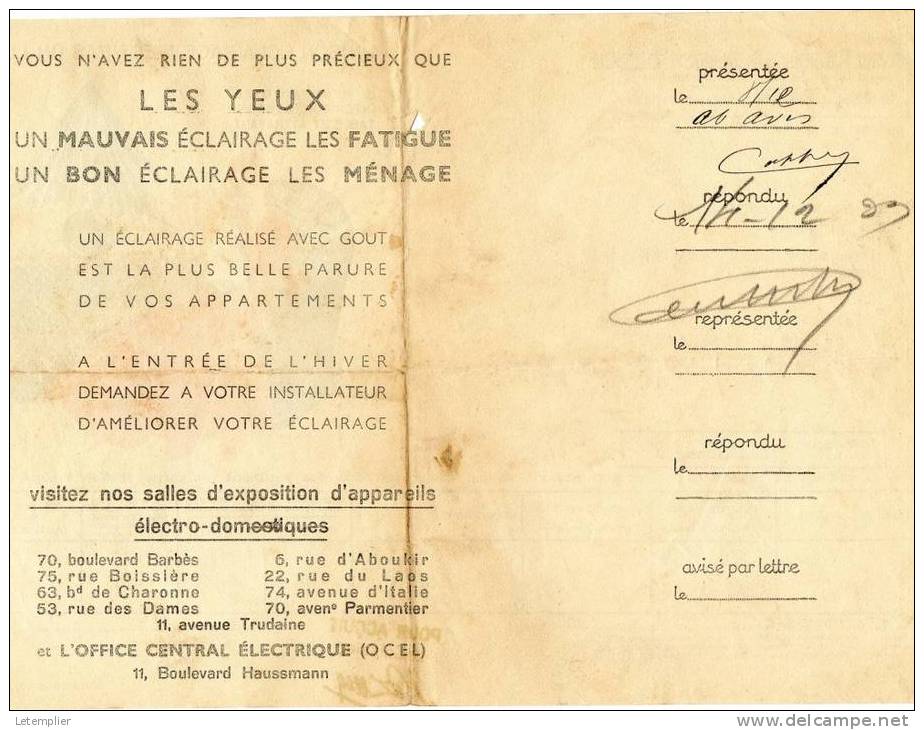 VOUS N'AVEZ RIEN DE PLUS PRÉCIEUX QUE
LES YEUX
UN MAUVAIS ÉCLAIRAGE LES FATIGUE
UN BON ÉCLAIRAGE LES MÉNAGE
UN ÉCLAIRAGE RÉALISÉ AVEC GOUT
EST LA PLUS BELLE PARURE
DE VOS APPARTEMENTS
A L'ENTRÉE DE L'HIVER
DEMANDEZ A VOTRE INSTALLATEUR
D'AMÉLIORER VOTRE ÉCLAIRAGE
visitez nos salles d'exposition d'appareils
électro-domestiques
70, boulevard Barbès 6, rue d'Aboukir
75, rue Boissière 22, rue du Laos
63, bd de Charonne 74, avenue d'Italie
53, rue des Dames 70, avene Parmentier
11, avenue Trudaine
et L'OFFICE CENTRAL ÉLECTRIQUE (OCEL)
11, Boulevard Haussmann
présentée
le 8/12
ab avis
répondu
le 14-12
représentée
le
répondu
le
avisé par lettre
le
POUR ACQUIT
Letemplier
delcampe.net